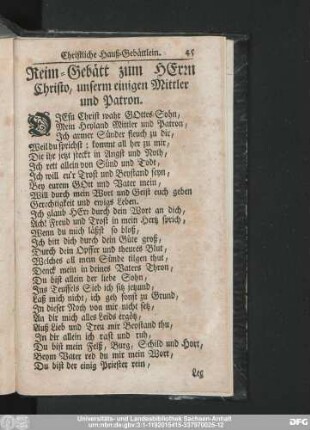 Christliche Hauß-Gebättlein. 45
Reim-Gebätt zum HErrn
Christo, unserm einigen Mittler
und Patron.
O JEsu Christ wahr GOttes-Sohn,
Mein Heyland Mittler und Patron,
Jch armer Sünder fleuch zu dir,
Weil du sprichst: kommt all her zu mir,
Die ihr jetzt steckt in Angst und Noth,
Jch rett allein von Sünd und Todt,
Jch will eu'r Trost und Beystand seyn,
Bey eurem GOtt und Vater mein,
Will durch mein Wort und Geist euch geben
Gerechtigkeit und ewigs Leben.
Jch glaub HErr durch dein Wort an dich,
Ach! Freud und Trost in mein Hertz sprich,
Wenn du mich läßst so bloß,
Jch bin dich durch dein Güte groß,
Durch dein Opffer und theures Blut,
Welches all mein Sünde tilgen thut,
Denck mein in deines Vaters Thron,
Du bist allein der liebe Sohn,
Jns Teuffels Sieb ich sitz jetzund,
Laß mich nicht, ich geh sonst zu Grund,
Jn dieser Noth von mir nicht setz,
An dir mich alles Leids ergötz,
Auß Lieb und Treu mir Beystand thu,
Jn dir allein ich rast und ruh,
Du bist mein Felß, Burg, Schild und Hort,
Beym Vater red du mir mein Wort,
Du bist der einig Priester rein,
Leg
Universitäts- und Landesbibliothek Sachsen-Anhalt
urn:nbn:de:gbv:3:1-1192015415-337970025-12
DFG